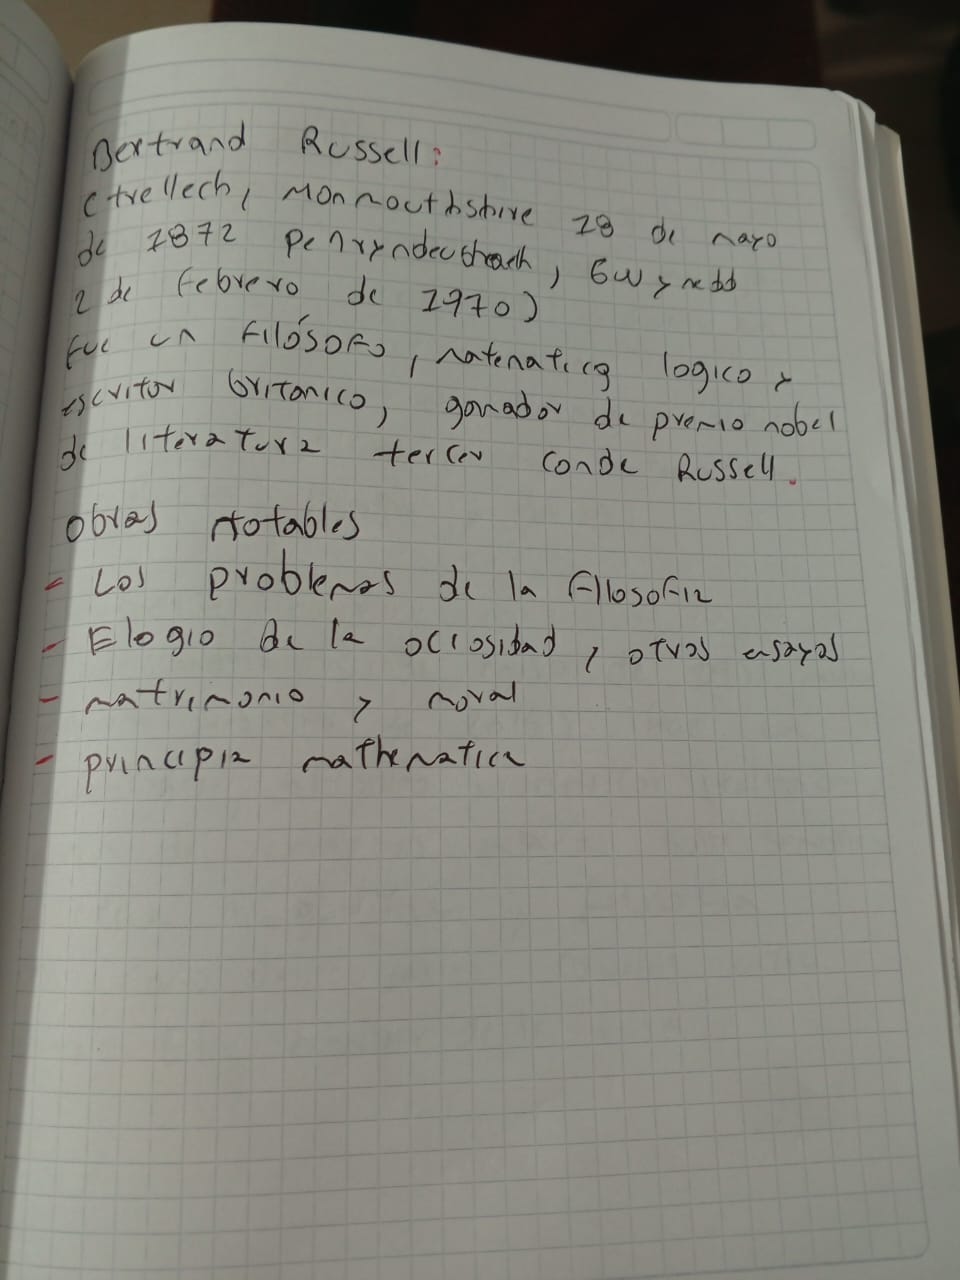 Bertrand Russell:
(trellech, Monmouthshire 18 de mayo
de 1872 Penryndeudraeth, Gwynedd
2 de febrero de 1970)
fue un filósofo, matematico logico y
escritor británico, ganador de premio nobel
de literatura tercer conde Russell.
obras notables
- Los problemas de la filosofia
- Elogio de la ociosidad y otros ensayos
- matrimonio y moral
- principia mathematica